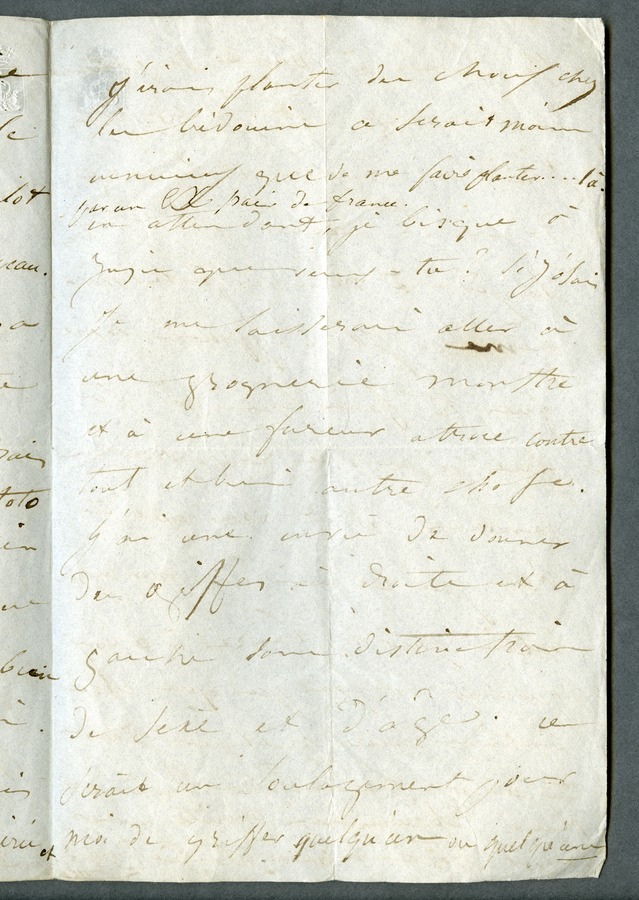 j'irais planter des choux chez
les bédouins ce serait moins
ennuieux que de me faire planter.... là.
par un Ex pair de france.
en attendant, je bisque à
que veux-tu? si j'osais
Je me laisserais aller à
une grognerie monstre
et à une fureur atroce contre
tout et bien autre chose.
J'ai une envie de donner
des giffes à droite et à
gauche sans distinction
de sexe et d'âge. ce
serait un soulagement pour
moi de griffer quelqu'un ou quelqu'une